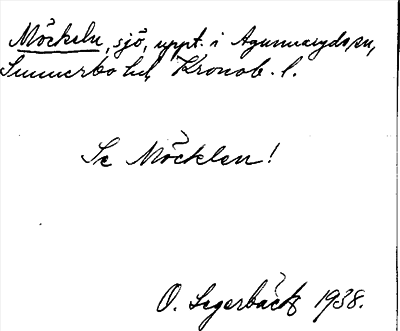 Möckeln, sjö, uppt. i Agunnaryds sn,
Sunnerbo hd, Kronob. l.
Se Möcklen!
O. Segerbäck 1938.